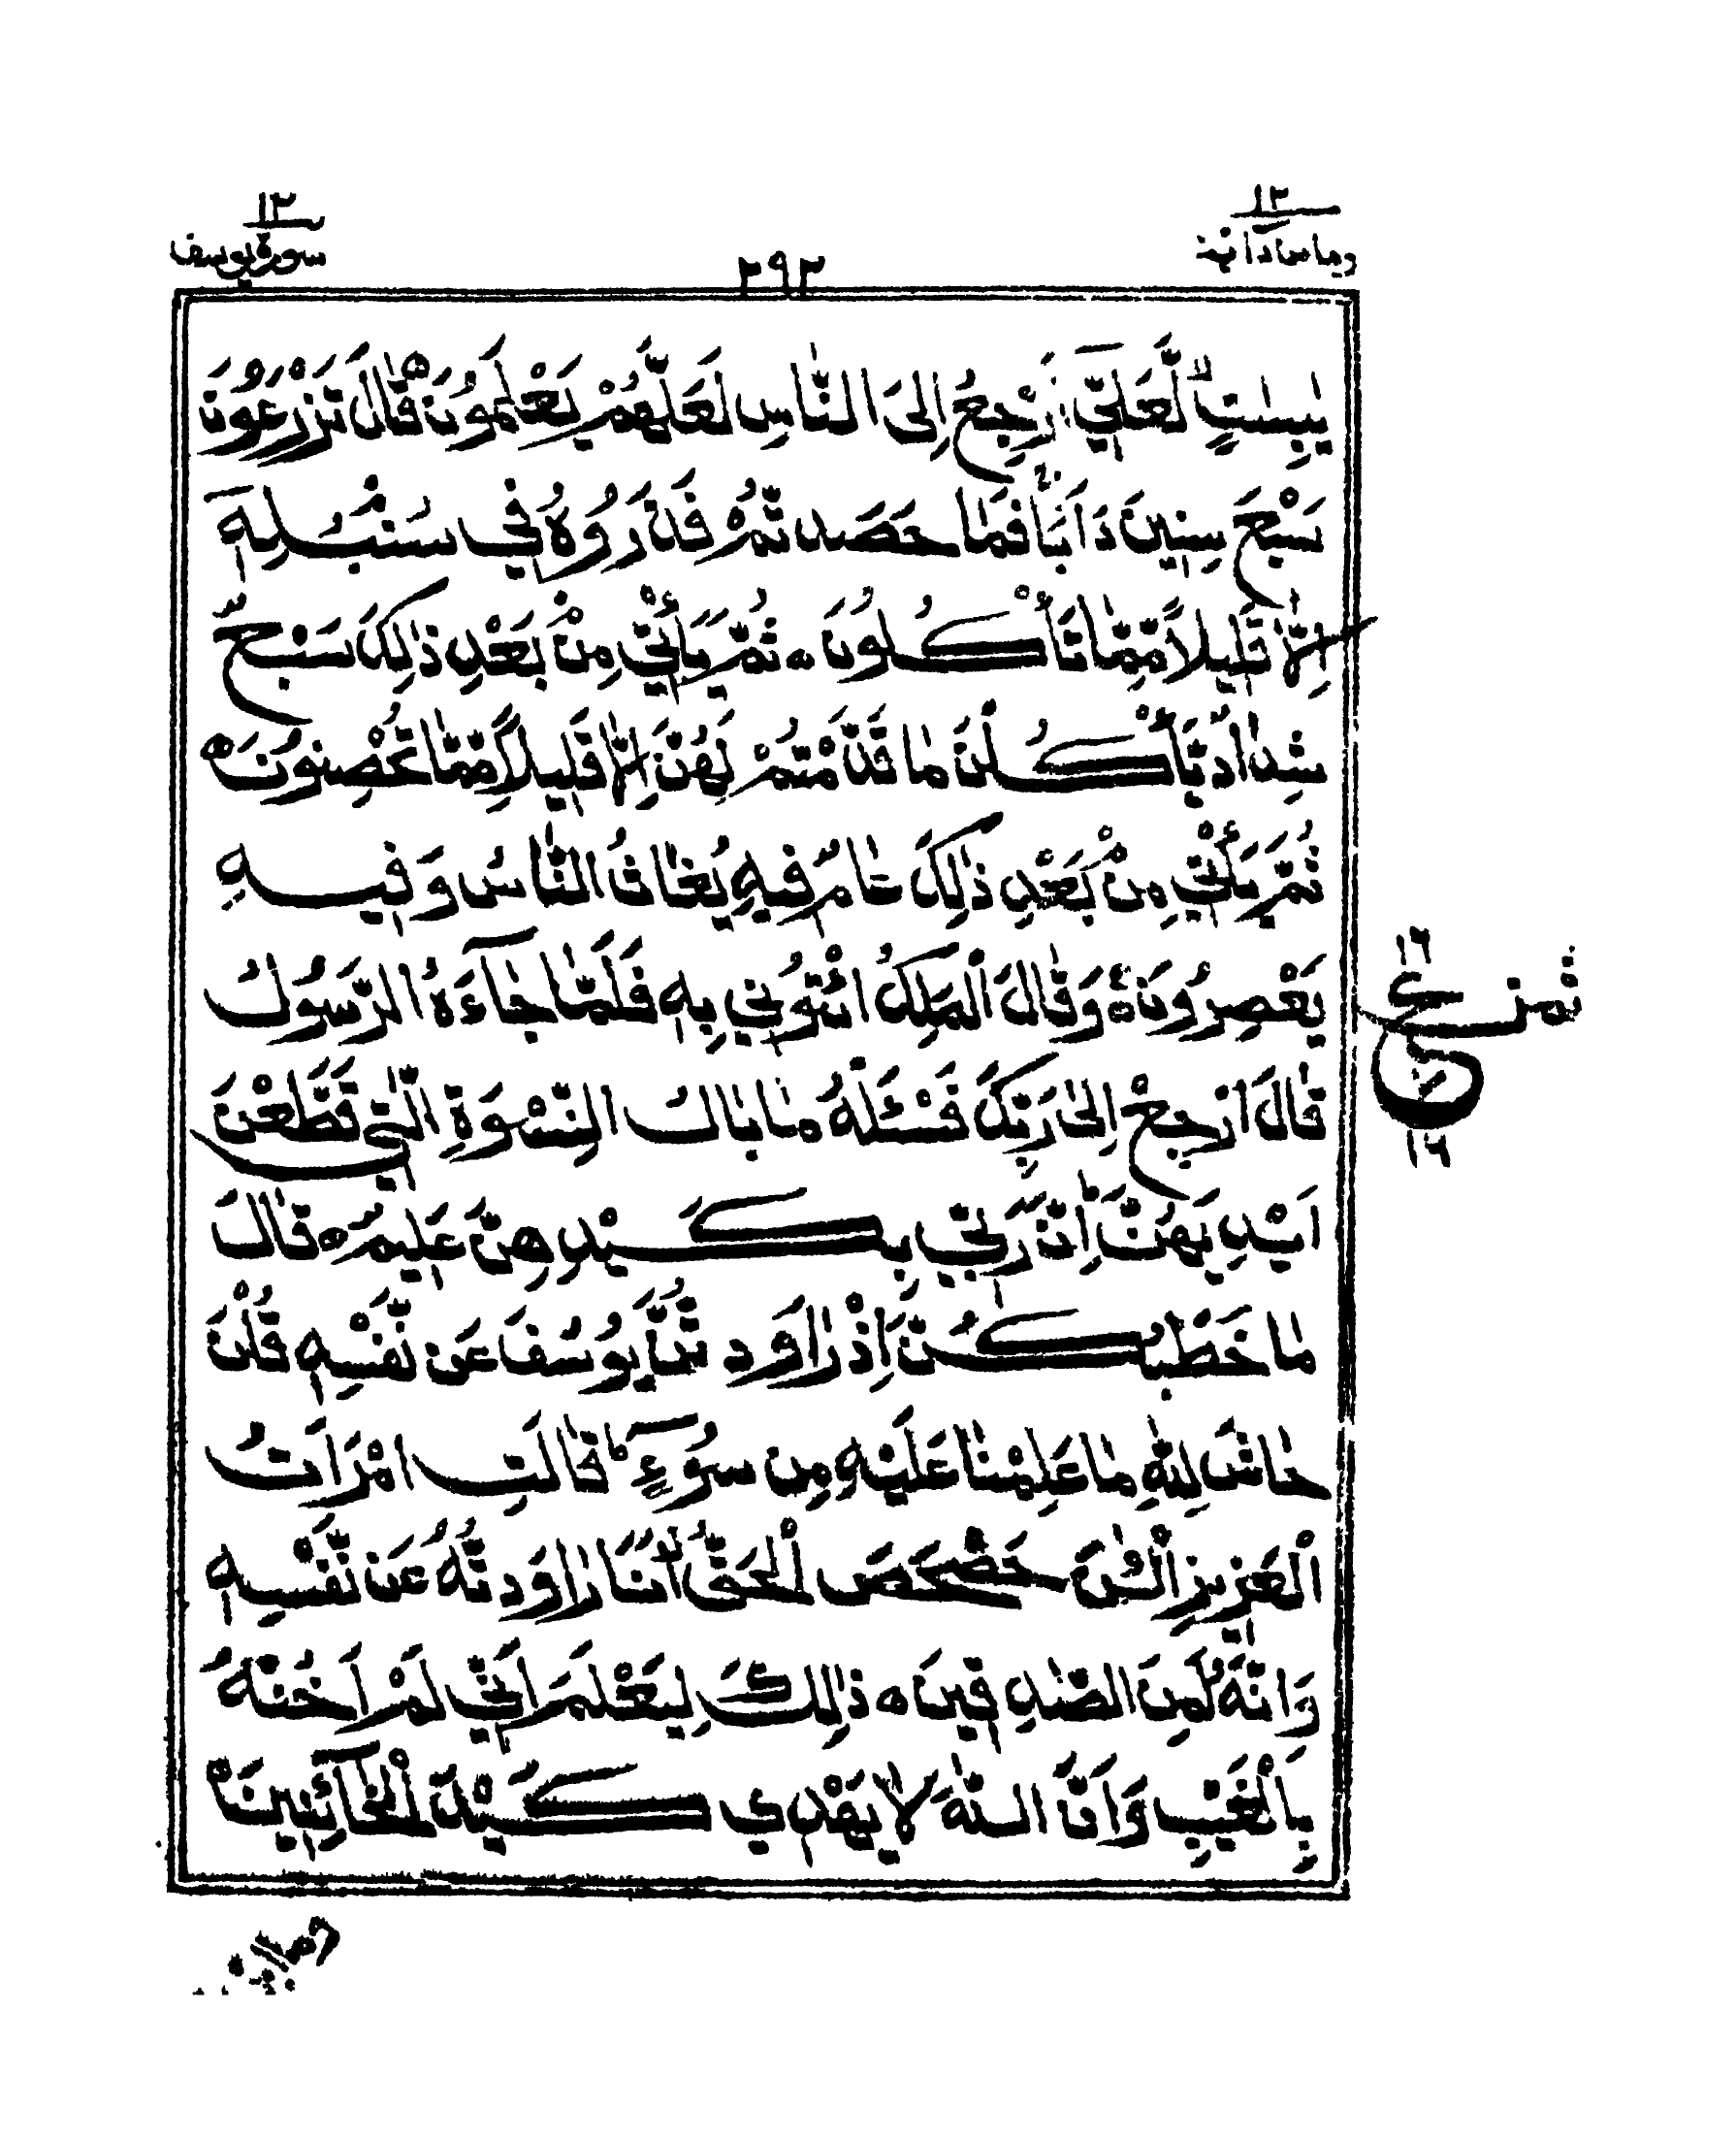 ١٢
وما من دآبة
٢٩٢
١٢
سورة يوسف
يٰبِسٰتٍ لَّعَلِّيٓ اَرْجِعُ اِلَى النَّاسِ لَعَلَّهُمْ يَعْلَمُوْنَ قَالَ تَزْرَعُوْنَ
سَبْعَ سِنِيْنَ دَاَبًا فَمَا حَصَدْتُّمْ فَذَرُوْهُ فِيْ سُنْۢبُلِهٖٓ
اِلَّا قَلِيْلًا مِّمَّا تَأْكُلُوْنَ ۝ ثُمَّ يَأْتِيْ مِنْۢ بَعْدِ ذٰلِكَ سَبْعٌ
شِدَادٌ يَّأْكُلْنَ مَا قَدَّمْتُمْ لَهُنَّ اِلَّا قَلِيْلًا مِّمَّا تُحْصِنُوْنَ ۝
ثُمَّ يَأْتِيْ مِنْۢ بَعْدِ ذٰلِكَ عَامٌ فِيْهِ يُغَاثُ النَّاسُ وَفِيْهِ
يَعْصِرُوْنَ ۝ وَقَالَ الْمَلِكُ ائْتُوْنِيْ بِهٖ فَلَمَّا جَآءَهُ الرَّسُوْلُ
ثمن ع
١٦
١٦
قَالَ ارْجِعْ اِلٰى رَبِّكَ فَسْـَٔلْهُ مَا بَالُ النِّسْوَةِ الّٰتِيْ قَطَّعْنَ
اَيْدِيَهُنَّ اِنَّ رَبِّيْ بِكَيْدِهِنَّ عَلِيْمٌ ۝ قَالَ
مَا خَطْبُكُنَّ اِذْ رَاوَدْتُّنَّ يُوْسُفَ عَنْ نَّفْسِهٖ قُلْنَ
حَاشَ لِلّٰهِ مَا عَلِمْنَا عَلَيْهِ مِنْ سُوْٓءٍ قَالَتِ امْرَاَتُ
الْعَزِيْزِ الْـٰٔنَ حَصْحَصَ الْحَقُّ اَنَا رَاوَدْتُّهُ عَنْ نَّفْسِهٖ
وَاِنَّهُ لَمِنَ الصّٰدِقِيْنَ ۝ ذٰلِكَ لِيَعْلَمَ اَنِّيْ لَمْ اَخُنْهُ
بِالْغَيْبِ وَاَنَّ اللّٰهَ لَا يَهْدِيْ كَيْدَ الْخَآئِنِيْنَ